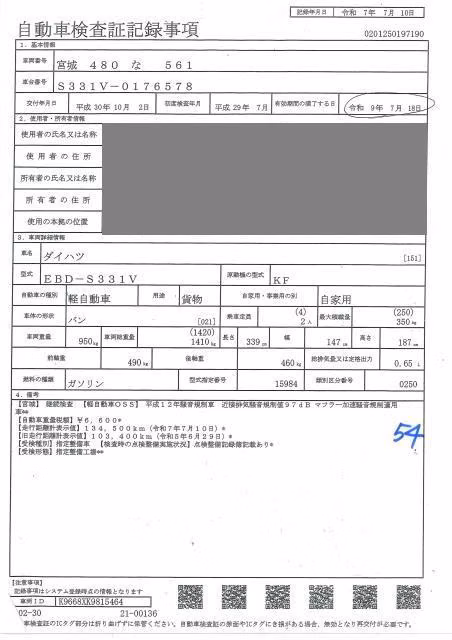 記録年月日 令和 7年 7月 10日
自動車検査証記録事項
0201250197190
1．基本情報
車両番号 宮城 480 な 561
車台番号 S331V-0176578
交付年月日 平成30年10月 2日 初度検査年月 平成29年 7月 有効期間の満了する日 令和 9年 7月 18日
2．使用者・所有者情報
使用者の氏名又は名称
使用者の住所
所有者の氏名又は名称
所有者の住所
使用の本拠の位置
3．車両詳細情報
車名 ダイハツ [151]
型式 EBD-S331V 原動機の型式 KF
自動車の種別 軽自動車 用途 貨物 自家用・事業用の別 自家用
車体の形状 バン [021] 乗車定員 (4) 2人 最大積載量 (250) 350kg
車両重量 950kg 車両総重量 (1420) 1410kg 長さ 339cm 幅 147cm 高さ 187cm
前軸重 490kg 後軸重 460kg 総排気量又は定格出力 0.65L
燃料の種類 ガソリン 型式指定番号 15984 類別区分番号 0250
4．備考
【宮城】 継続検査 【軽自動車OSS】 平成12年騒音規制車 近接排気騒音規制値97dB マフラー加速騒音規制適用
車**
【自動車重量税額】￥6,600*
【走行距離計表示値】134,500km（令和7年7月10日）*
【旧走行距離計表示値】103,400km（令和5年6月29日）*
【受検種別】指定整備車 【検査時の点検整備実施状況】点検整備記録簿記載あり*
【受検形態】指定整備工場**
54
【注意事項】
記録事項はシステム登録時点の情報となります
車両ID K9668XK9815464
02-30 21-00136
車検査証のICタグ部分は折り曲げずに保管ください。自動車検査証の券面やICタグにき損がある場合、無効となり再交付が必要です。